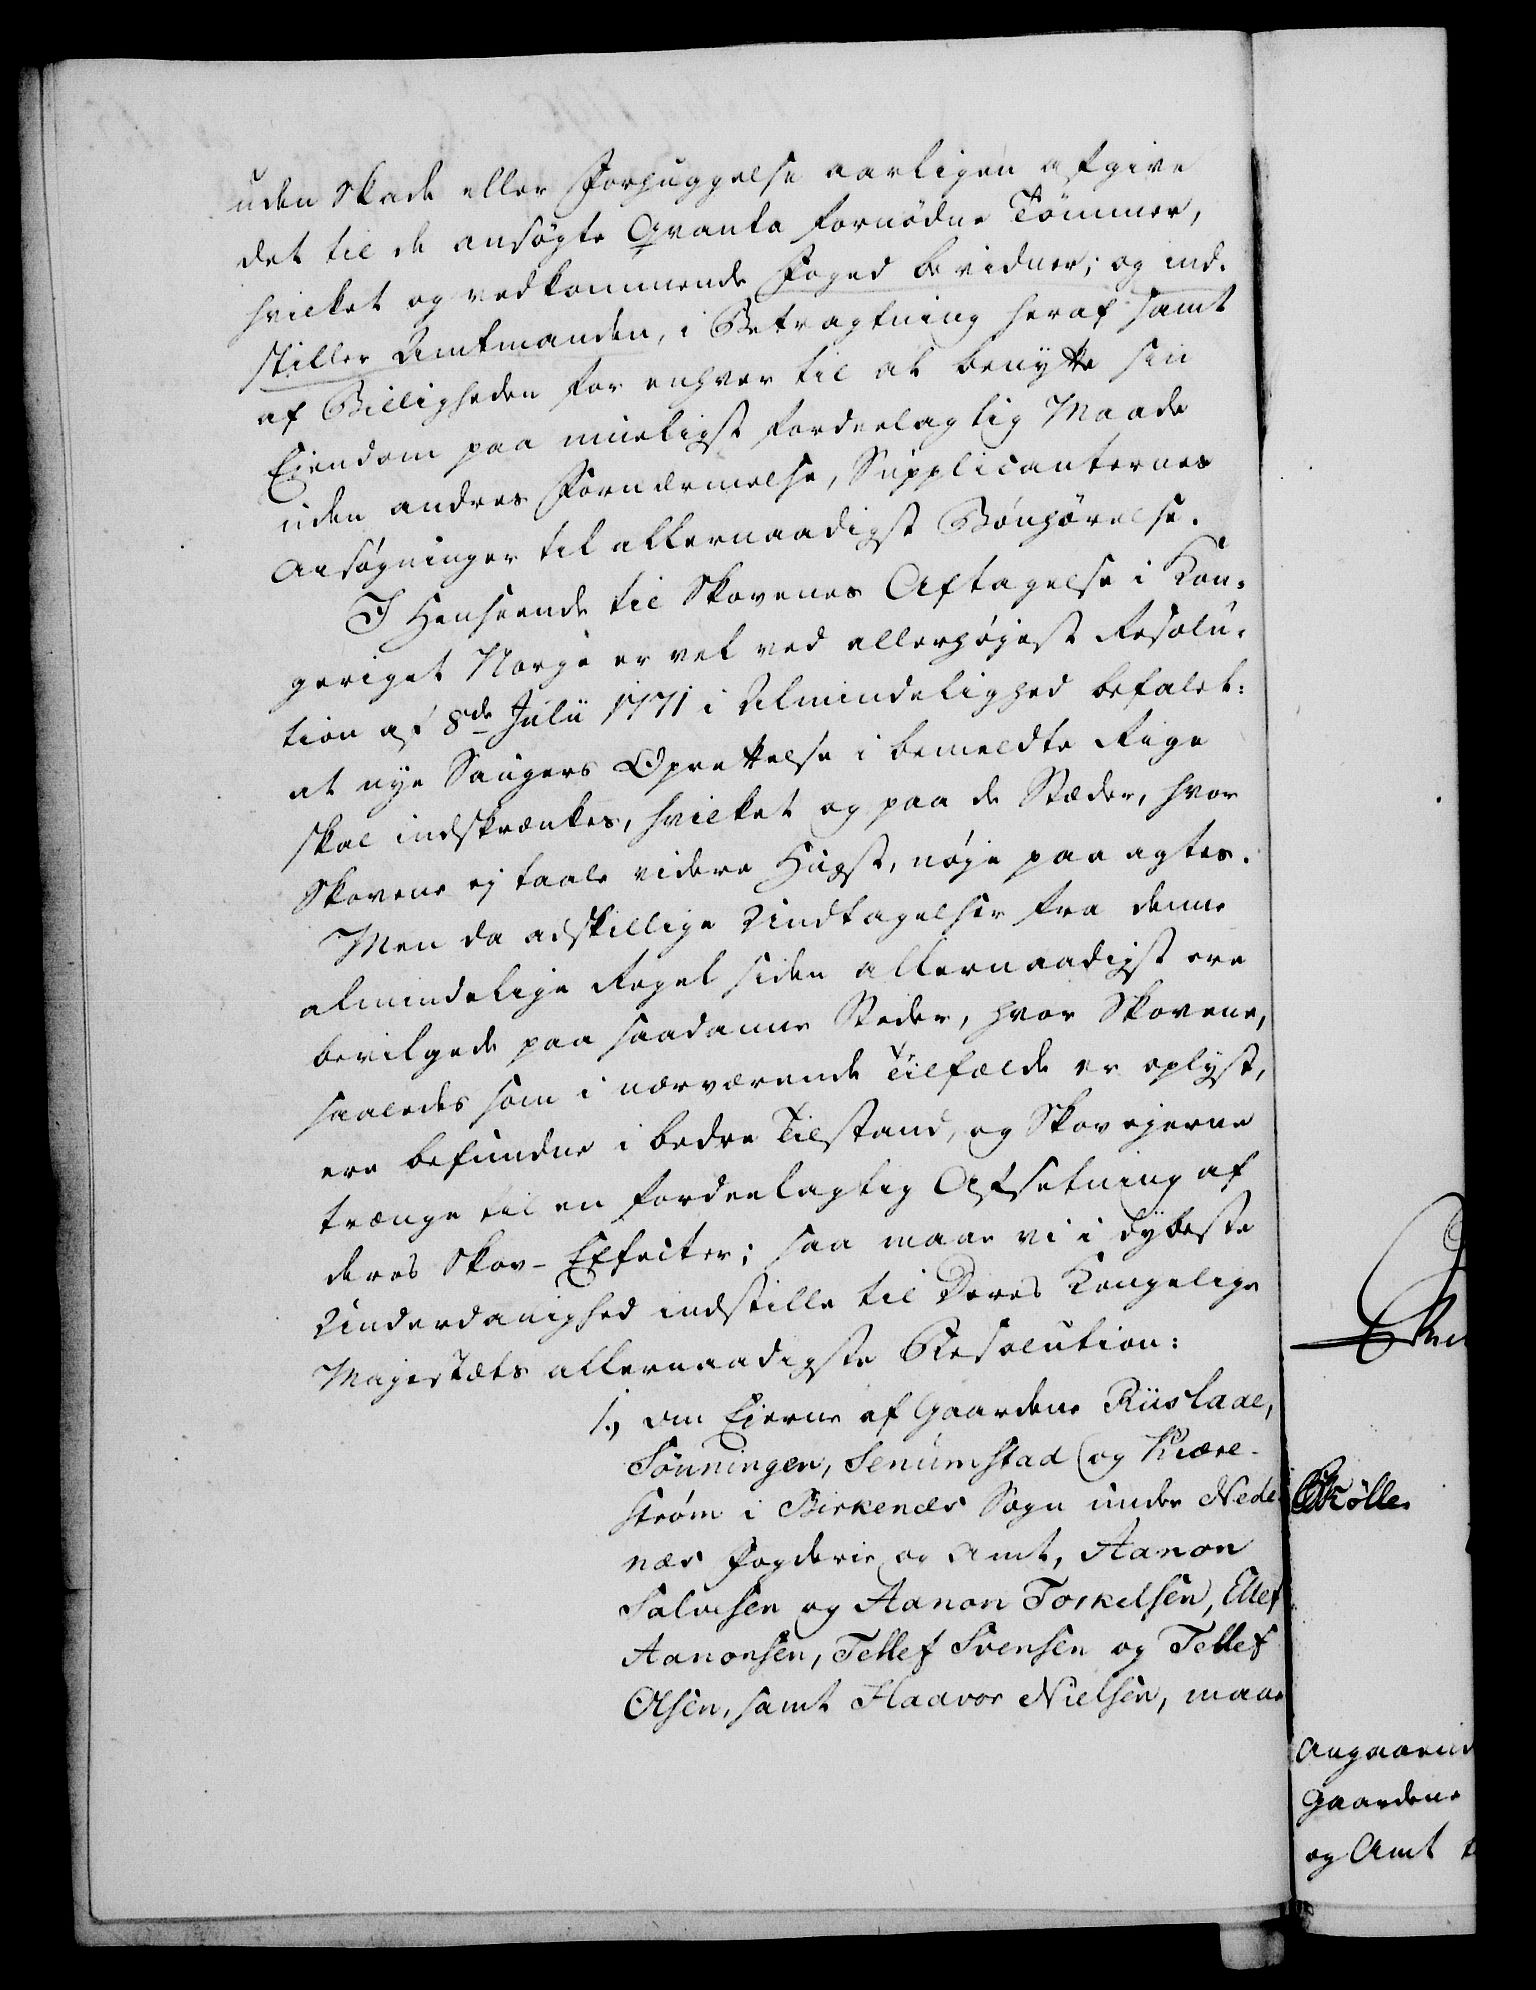 uden Skade eller Forhuggelse aarligen afgive
det til de ansøgte Qvanta fornødne Tømmer,
hvilket og vedkommende Foged bevidner; og ind-
stiller Amtmanden, i Betragtning heraf samt
af Billigheden for enhver til at benytte sin
Eiendom paa mueligst fordeelagtig Maade
uden andres Fornærmelse, Supplicanternes
Ansøgninger til allernaadigst Bønhørelse.
I Henseende til Skovenes Aftagelse i Kon-
geriget Norge er vel ved allerhøjest Resolu-
tion af 8de Julii 1771 i Almindelighed befalet:
at nye Saugers Oprettelse i bemeldte Rige
skal indskrænkes, hvilket og paa de Stæder, hvor
Skovene ej taale videre Hugst, nøje paa agtes.
Men da adskillige Undtagelser fra denne
almindelige Regel siden allernaadigst ere
bevilgede paa saadanne Steder, hvor Skovene,
saaledes som i nærværende Tilfælde er oplyst,
ere befundne i bedre Tilstand, og Skovejerne
trænge til en fordeelagtig Afsetning af
deres Skov-Effecter; saa maae vi i dybeste
Underdanighed indstille til Deres Kongelige
Majestæts allernaadigste Resolution:
1., om Eierne af Gaardene Riislaae,
Sønningen, Senumstad og Kiære-
strøm i Birkenæs Sogn under Nede-
næs Fogderie og Amt, Aanon
Salvesen og Aanon Torkelsen, Ellef
Aanonsen, Tellef Svensen og Tellef
Olsen, samt Haavor Nielsen, maae
Skølle
Angaaend
Gaardene
og Amt